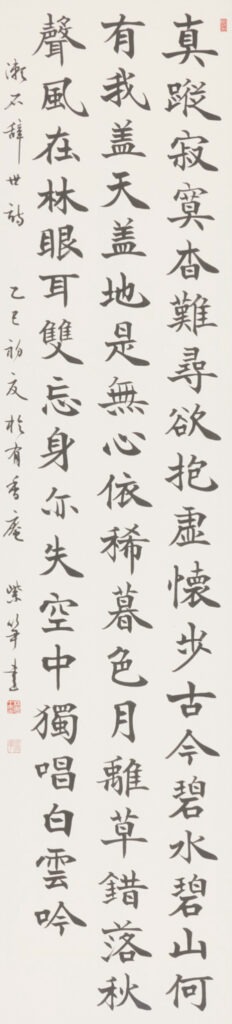 真蹤寂寞杳難尋欲抱虛懷步古今碧水碧山何
有我盖天盖地是無心依稀暮色月離草錯落秋
聲風在林眼耳雙忘身亦失空中獨唱白雲吟
漱石辞世詩 乙巳初夏於有香庵 紫筆書